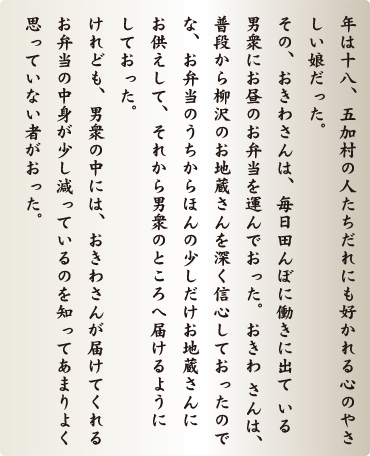 年は十八、五加村の人たちだれにも好かれる心のやさ
しい娘だった。
その、おきわさんは、毎日田んぼに働きに出ている
男衆にお昼のお弁当を運んでおった。おきわさんは、
普段から柳沢のお地蔵さんを深く信心しておったので
な、お弁当のうちからほんの少しだけお地蔵さんに
お供えして、それから男衆のところへ届けるように
しておった。
けれども、男衆の中には、おきわさんが届けてくれる
お弁当の中身が少し減っているのを知ってあまりよく
思っていない者がおった。